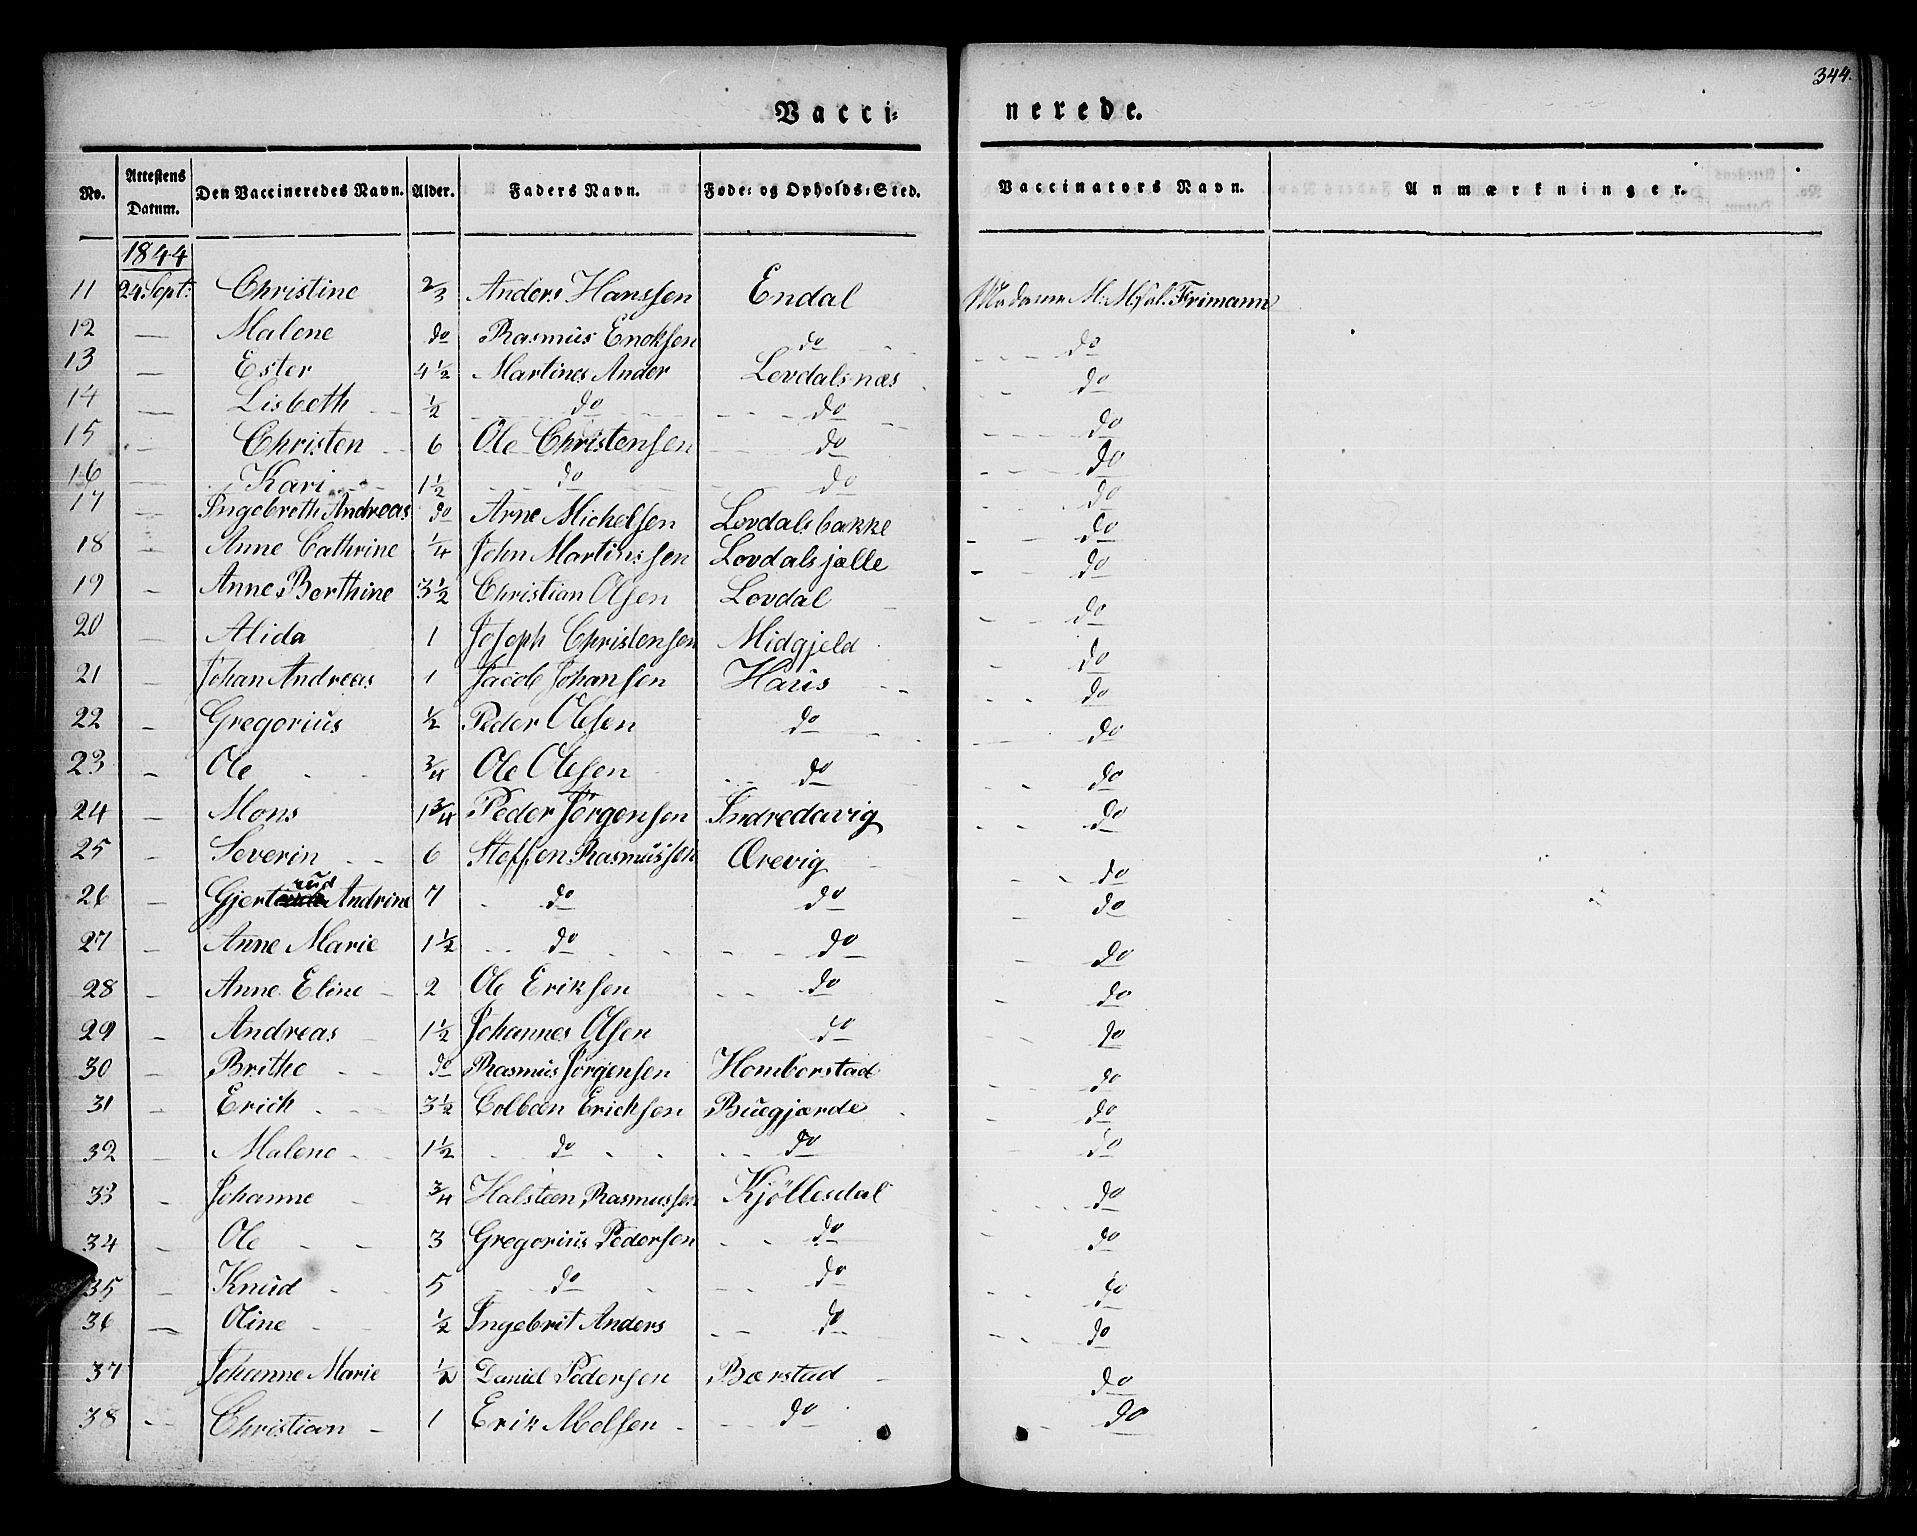 344.
Vacci= nerede.
No. Attestens Datum. Den Vaccineredes Navn. Alder. Faders Navn. Føde= og Opholds=Sted. Vaccinators Navn. Anmærkninger.
1844
11 24 Sept: Christine 2/3 Anders Hanssen Endal Madame M: Frimann
12 — Malene do Rasmus Enoksen do do
13 — Ester 4 1/2 Martines Ander Lovdalsnæs do
14 — Lisbeth 1/2 do do do
15 — Christen 6 Ole Christensen do do
16 — Kari 1 1/2 do do do
17 — Ingebreth Andreas do Arne Michelsen Lovdalsbakke do
18 — Anne Cathrine 1/4 John Martinssen Lovdalsjælle do
19 — Anne Berthine 3 1/2 Christian Olsen Lovdal do
20 — Alida 1 Joseph Christensen Midgjeld do
21 — Johan Andreas 1 Jacob Johansen Haus do
22 — Gregorius 1/2 Peder Olesen do do
23 — Ole 3/4 Ole Olesen do do
24 — Mons 1 3/4 Peder Jørgensen Indredavig do
25 — Severin 6 Steffen Rasmussen Ærevig do
26 — Gjertrud Andrine 7 do do do
27 — Anne Marie 1 1/2 do do do
28 — Anne Eline 2 Ole Eriksen do do
29 — Andreas 1 1/2 Johannes Olsen do do
30 — Brithe do Rasmus Jørgensen Homborstad do
31 — Erich 3 1/2 Colbeen Ericksen Buegjærde do
32 — Malene 1 1/2 do do do
33 — Johanne 3/4 Halsteen Rasmussen Kjöllesdal do
34 — Ole 3 Gregorius Pedersen do do
35 Knud 5 do do do
36 — Oline 1/2 Ingebrit Anders do do
37 Johanne Marie 1/2 Daniel Pedersen Bærstad do
38 — Christian 1 Erik Molsen do do